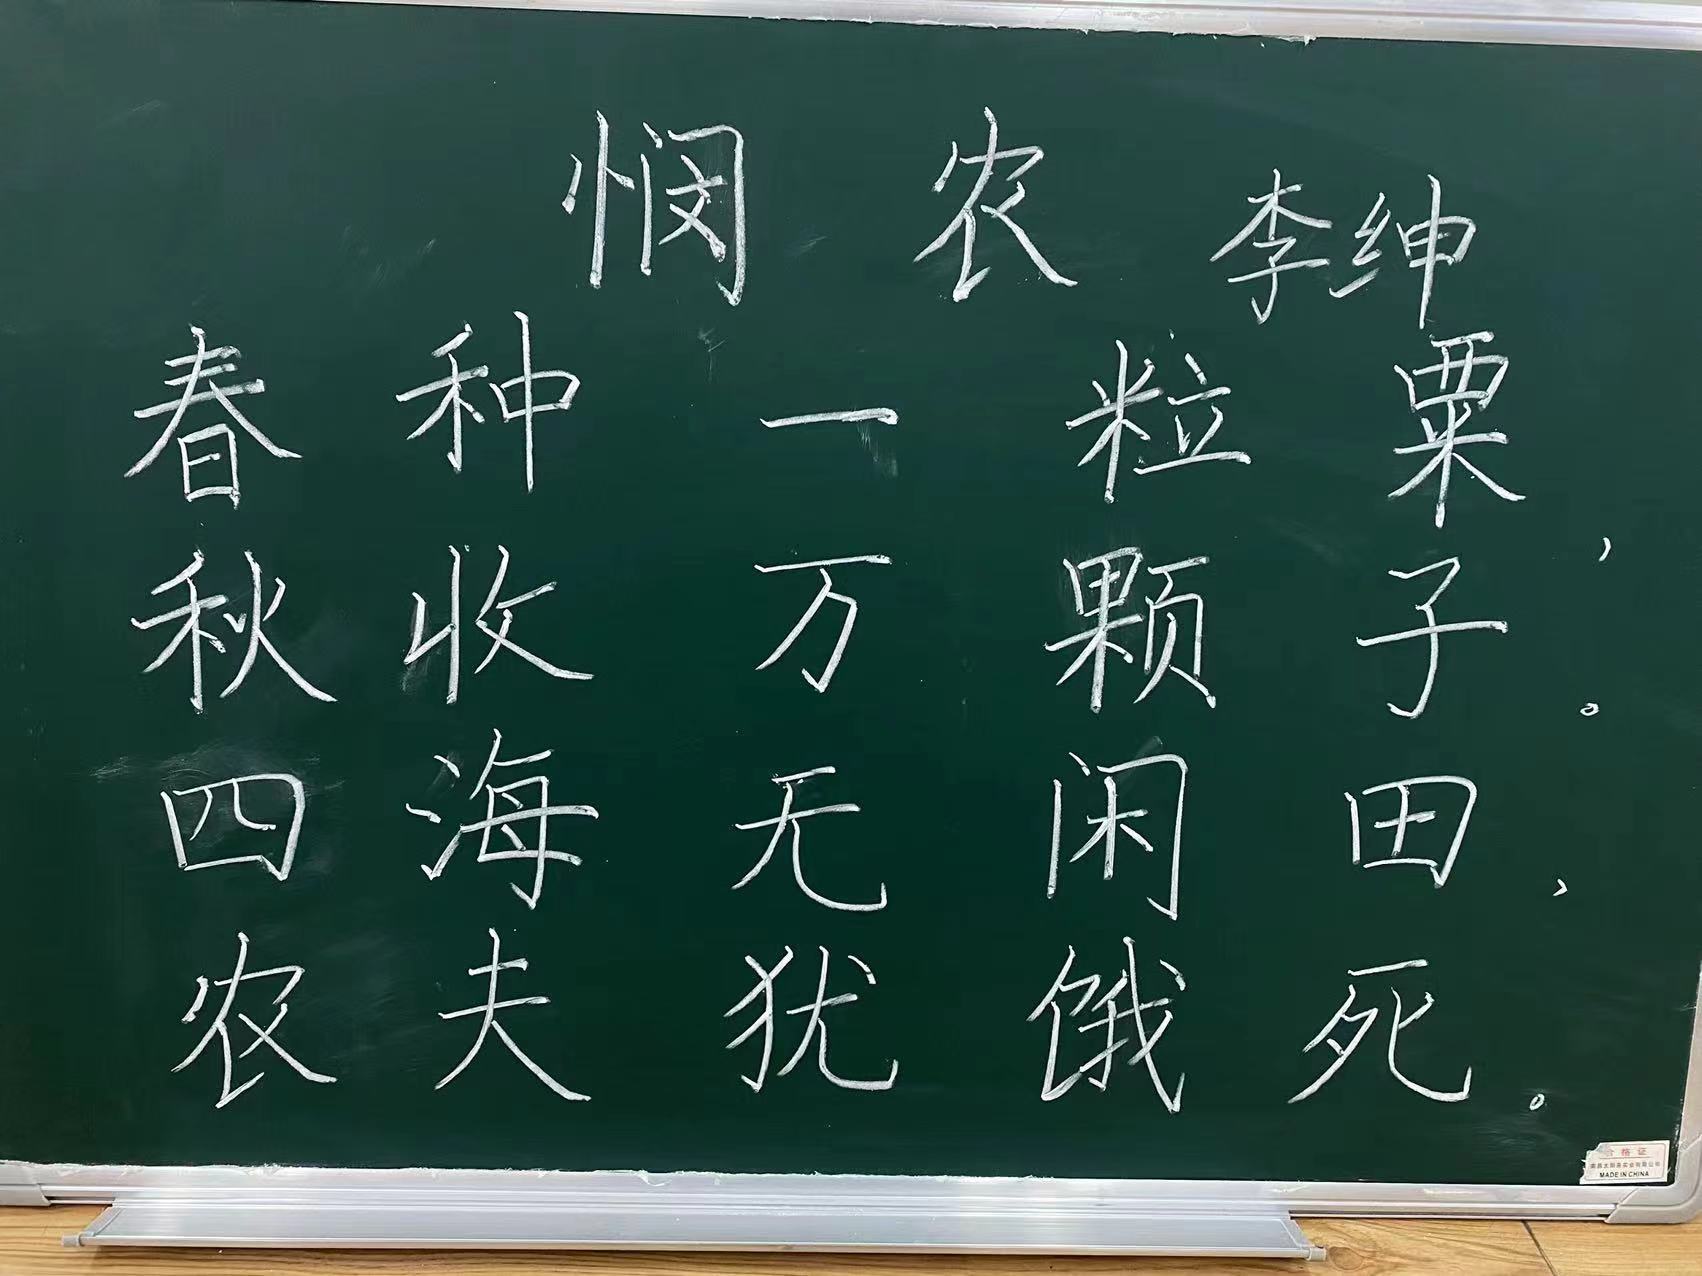 悯农 李绅
春种一粒粟，
秋收万颗子。
四海无闲田，
农夫犹饿死。
合格证
MADE IN CHINA